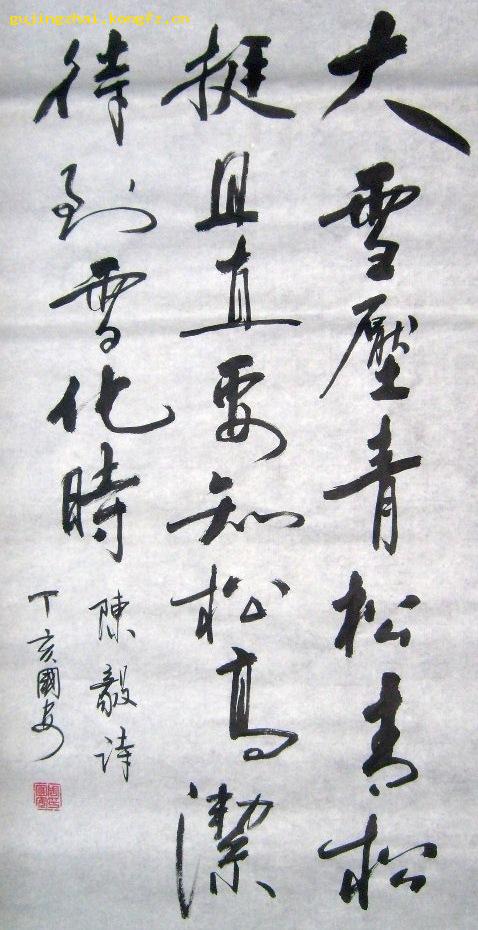 gujingzhai.kongfz.cn
大雪壓青松青松
挺且直要知松高潔
待到雪化時
陳毅詩
丁亥國安